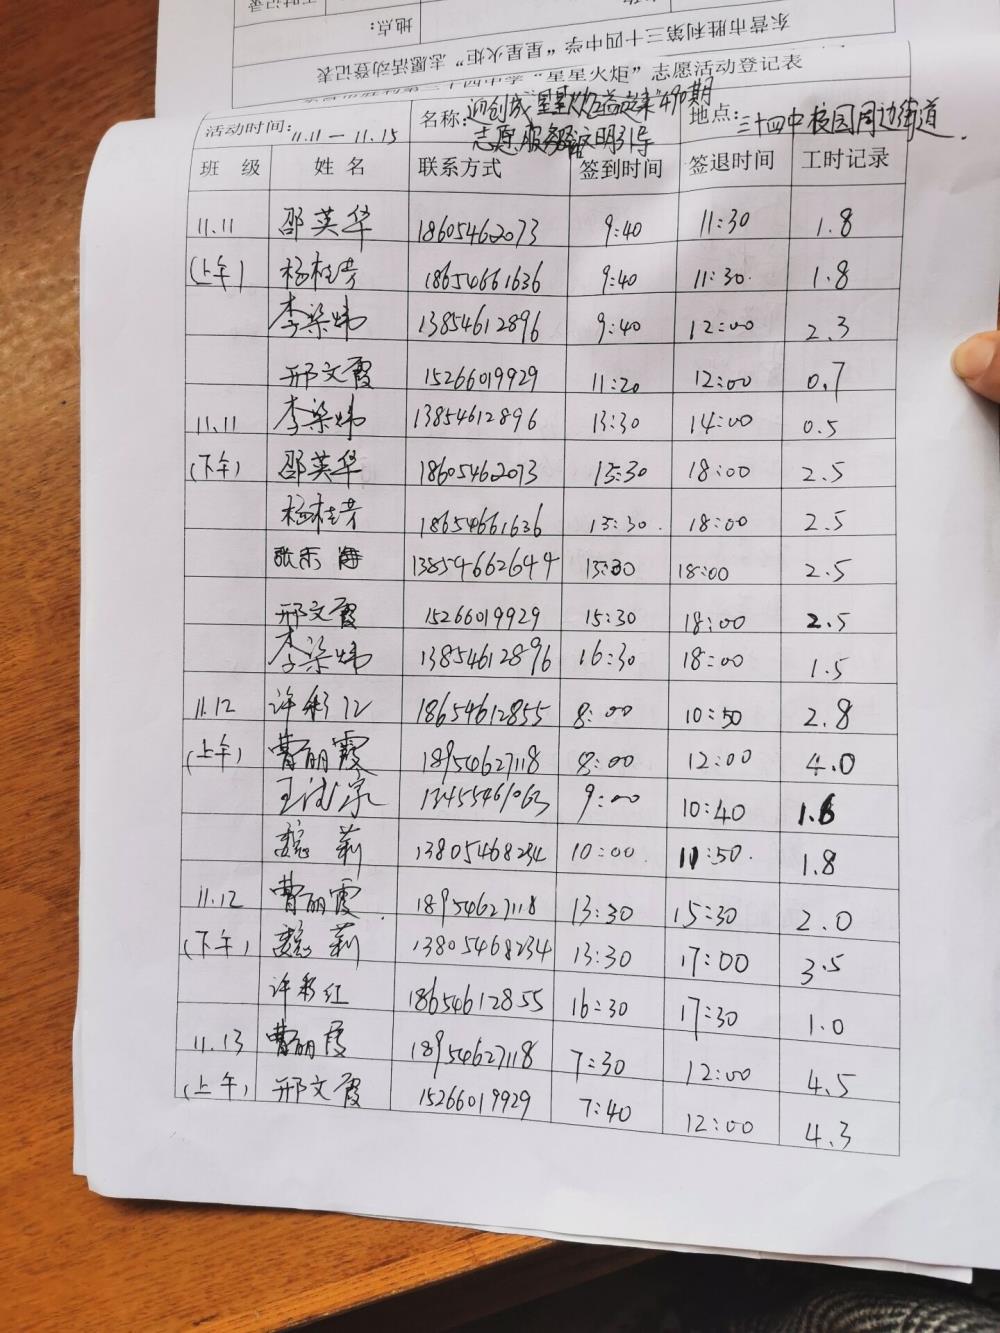 东营市胜利第三十四中学“星星火炬”志愿活动登记表
地点:
“星星火炬”志愿活动登记表
活动时间: 11.11-11.15 名称: 迎创城 星星火炬益起来 期 志愿服务 文明引导 地点: 三十四中校园周边街道.
班 级 姓 名 联系方式 签到时间 签退时间 工时记录
11.11 邵英华 18605462073 9:40 11:30 1.8
(上午) 杨桂芳 18654661636 9:40 11:30. 1.8
李梁炜 13854612896 9:40 12:00 2.3
邢文霞 15266019929 11:20 12:00 0.7
11.11 李梁炜 13854612896 13:30 14:00 0.5
(下午) 邵英华 18605462073 15:30 18:00 2.5
杨桂芳 18654661636 15:30. 18:00 2.5
张东海 13854662644 15:30 18:00 2.5
邢文霞 15266019929 15:30 18:00 2.5
李梁炜 13854612896 16:30 18:00 1.5
11.12 许彩红 18654612855 8:00 10:50 2.8
(上午) 曹丽霞 18954627118 8:00 12:00 4.0
王 9:00 10:40 1.6
魏莉 13805468234 10:00. 11:50. 1.8
11.12 曹丽霞. 18954627118 13:30 15:30 2.0
(下午) 魏莉 13805468234 13:30 17:00 3.5
许彩红 18654612855 16:30 17:30 1.0
11.13 曹丽霞 18954627118 7:30 12:00 4.5
(上午) 邢文霞 15266019929 7:40 12:00 4.3